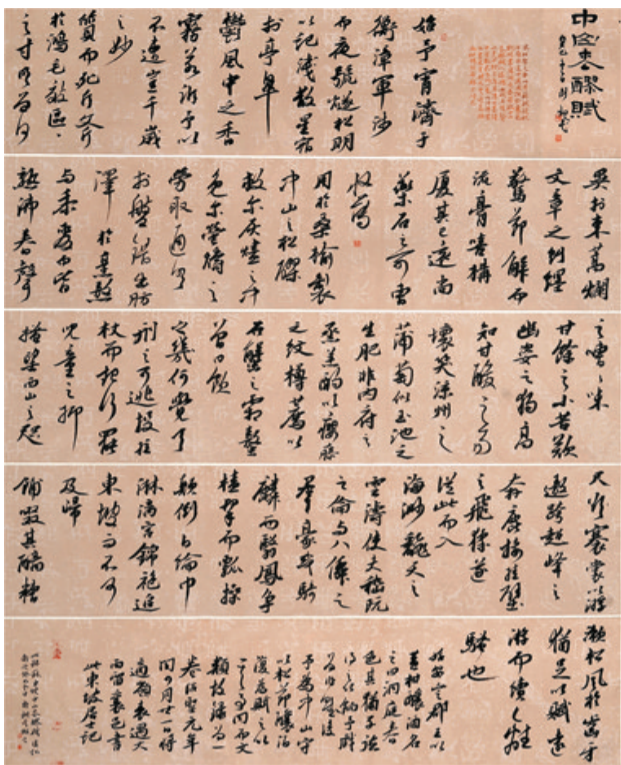 中山松醪賦
始予宵濟于
衡漳軍涉
而夜號燧松明
以記淺散星宿
於亭皋
鬱風中之香
霧若訴予以
不遭豈千歲
之妙
質而死斤斧
於鴻毛效區區
之寸明曾何
異於束蒿爛
文章之糾纆
驚節解而
流膏嗟構
廈其已遠尚
藥石之可曹
收薄
用於桑榆製
中山之松醪
救爾灰燼之中
免爾螢爝之
勞取通明
於盤錯出肪
澤於烹熬
與黍麥而皆
熟沸舂聲
之嘈嘈味
甘餘之小苦歎
幽姿之獨高
知甘酸之易
壞笑涼州之
蒲萄似玉池之
生肥非內府之
蒸羔酌以癭藤
之紋樽薦以
石蟹之霜螯
曾日飲
之幾何覺天
刑之可逃投拄
杖而起行罷
兒童之抑
搔望西山之咫
尺欲褰裳以游
遨跨超峰之
奔鹿接挂壁
之飛猱遂
從此而入
海渺翻天之
雲濤使夫嵇阮
之倫與八仙之
群豪或騎
麟而翳鳳爭
榼挈而瓢操
顛倒白綸巾
淋漓宮錦袍追
東坡而不可
及歸
餔歠其醨糟
漱松風於齒牙
猶足以賦遠
游而續離
騷也
始安定郡王以
黃柑釀酒名
之曰洞庭春
色其猶子德
麟得之以餉予戲
為作賦後
予為中山守
以松節釀酒
復為賦之以
其事同而文
類故錄為一
卷紹聖元年
閏四月廿一日將
適嶺表遇大
雨留襄邑書
此東坡居士記